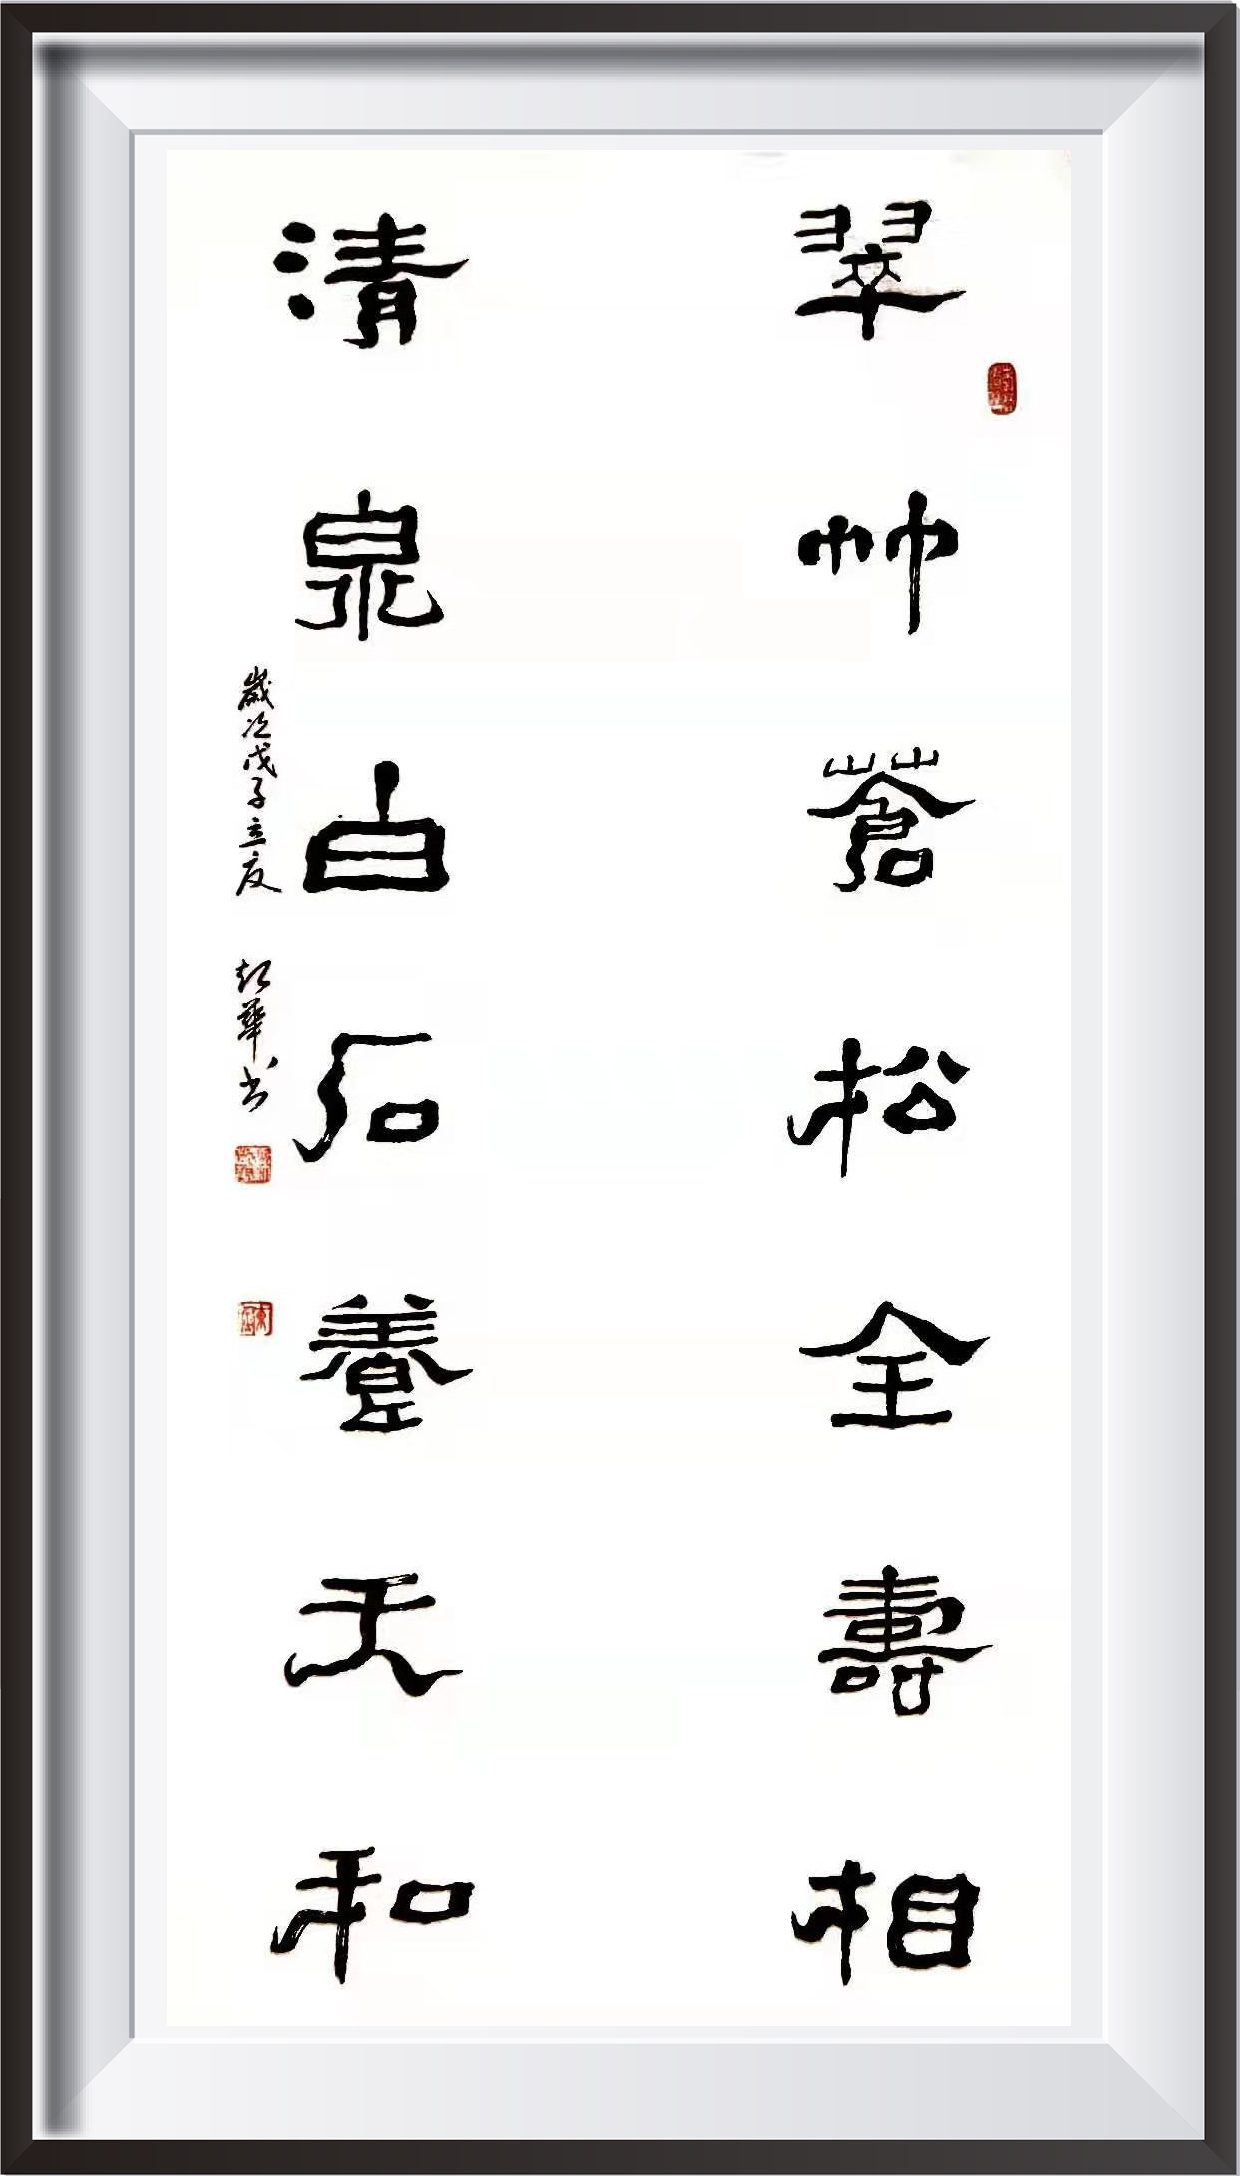 翠竹蒼松全壽相
清泉白石養天和
歲次戊子立夏
華书